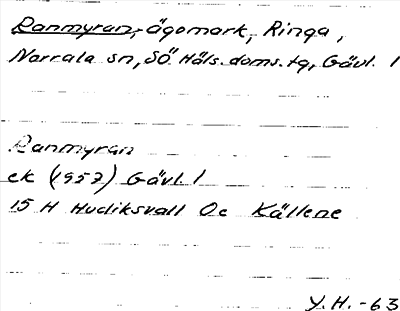 Ranmyran, ägomark, Ringa,
Norrala sn, SÖ Häls. doms. tg, Gävl. l
Ranmyran
ek (1957) Gävl. l
15 H Hudiksvall Oc Källene
Y.H. -63